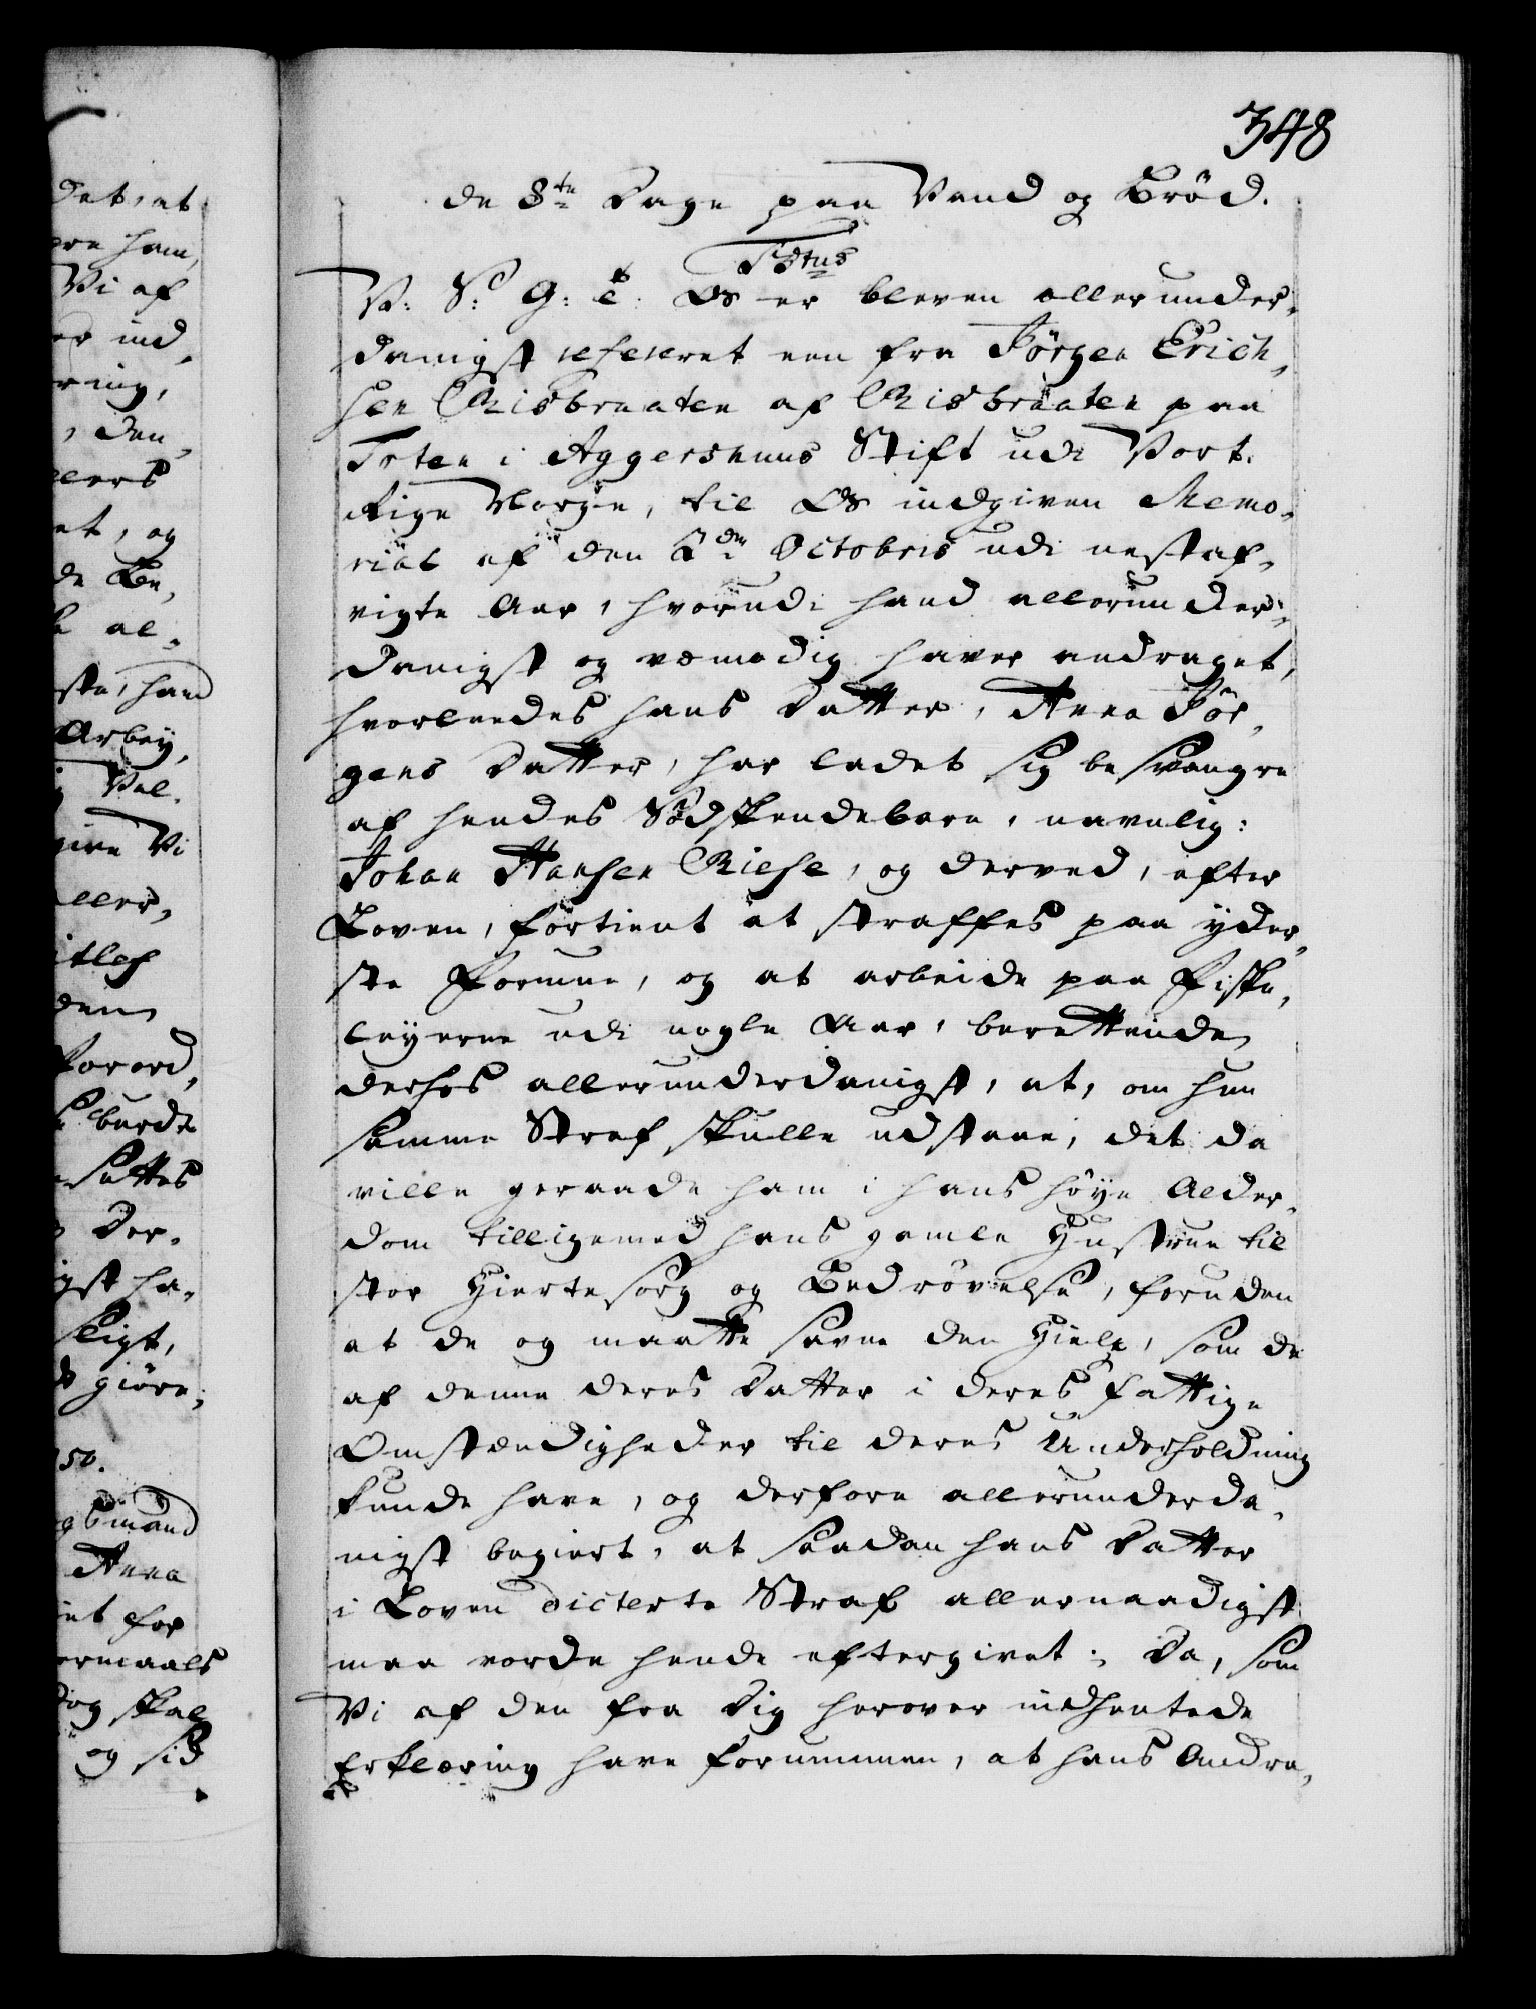 348
de 8te Dage paa Vand og Brød.
Titus
V: S: G: T. Os er bleven allerunder-
danigst refereret een fra Jörgen Erich-
sen Riisbraaten af Riisbraaten paa
Toten i Aggershuus Stift udi Vort
Rige Norge, til Os indgiven Memo-
rial af den 2den Octobris udi nestaf-
vigte Aar, hvorudi hand allerunder-
danigst og vemodig haver andraget,
hvorleedes hans Datter, Anna Jör-
gens Datter, har ladet sig besvangre
af hendes Södskendebarn, navnlig:
Johan Hansen Riese, og derved, efter
Loven, fortient at straffes paa yder-
ste Formue, og at arbeide paa Fiske-
leyerne udi nogle Aar, berettende
derhos allerunderdanigst, at, om hun
samme Straf skulle udstaae, det da
ville geraade ham i hans höye Alder-
dom tilligemed hans gamle Hustrue til
stor Hiertesorg og Bedrövelse, foruden
at de og maatte savne den Hielp, som de
af denne deres Datter i deres fattige
Omstændigheder til deres Underholdning
kunde have, og derfore allerunderda-
nigst begiert, at saadan hans Datter
i Loven dicterte Straf allernaadigst
maa vorde hende eftergivet; Da, som
Vi af den fra Dig herover indhentede
Erklæring have fornummen, at hans Andra-
det, at
ham,
Vi af
ind
ring,
, den
et, og
de Be,
al-
ste, hand
Arbey,
Vel
give Vi
aller,
den
Forord,
burde
Der-
igst ha-
sligt,
giöre;
50.
mand
Anna
for
ormaals
dog skal
og sid